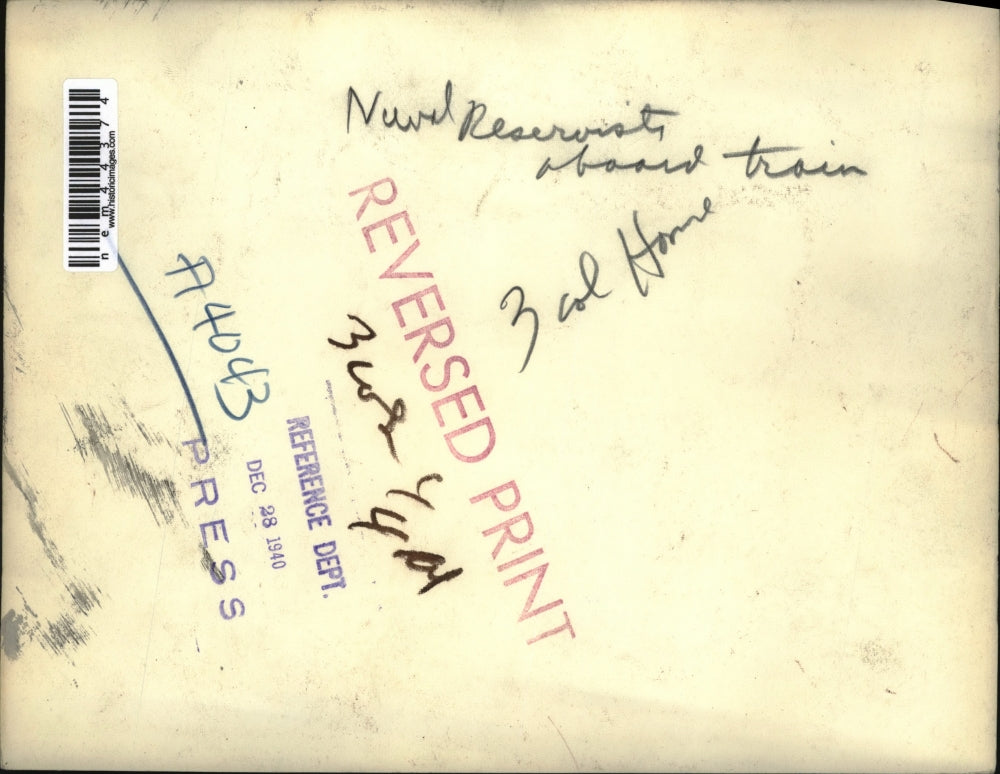 Naval Reservists
aboard train
3 col Home
REVERSED PRINT
3 col
REFERENCE DEPT.
DEC 28 1940
PRESS
A4043
nem44374
www.historicimages.com